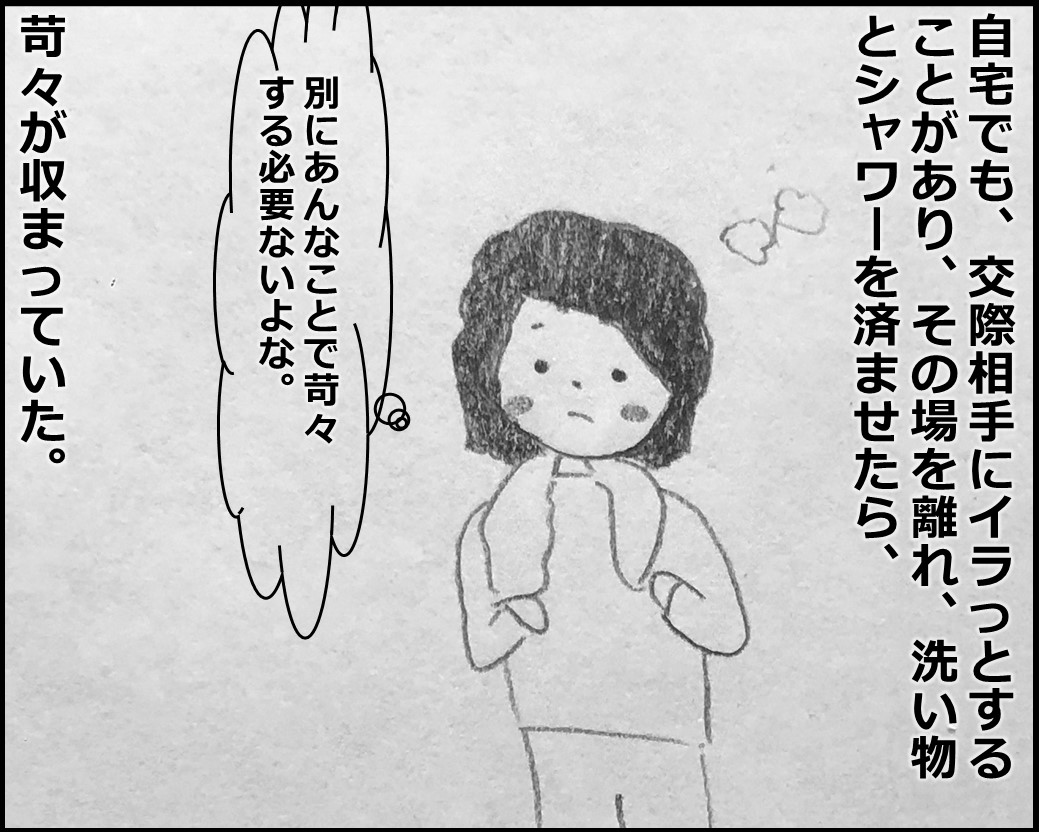 自宅でも、交際相手にイラっとする
ことがあり、その場を離れ、洗い物
とシャワーを済ませたら、
別にあんなことで苛々
する必要ないよな。
苛々が収まっていた。